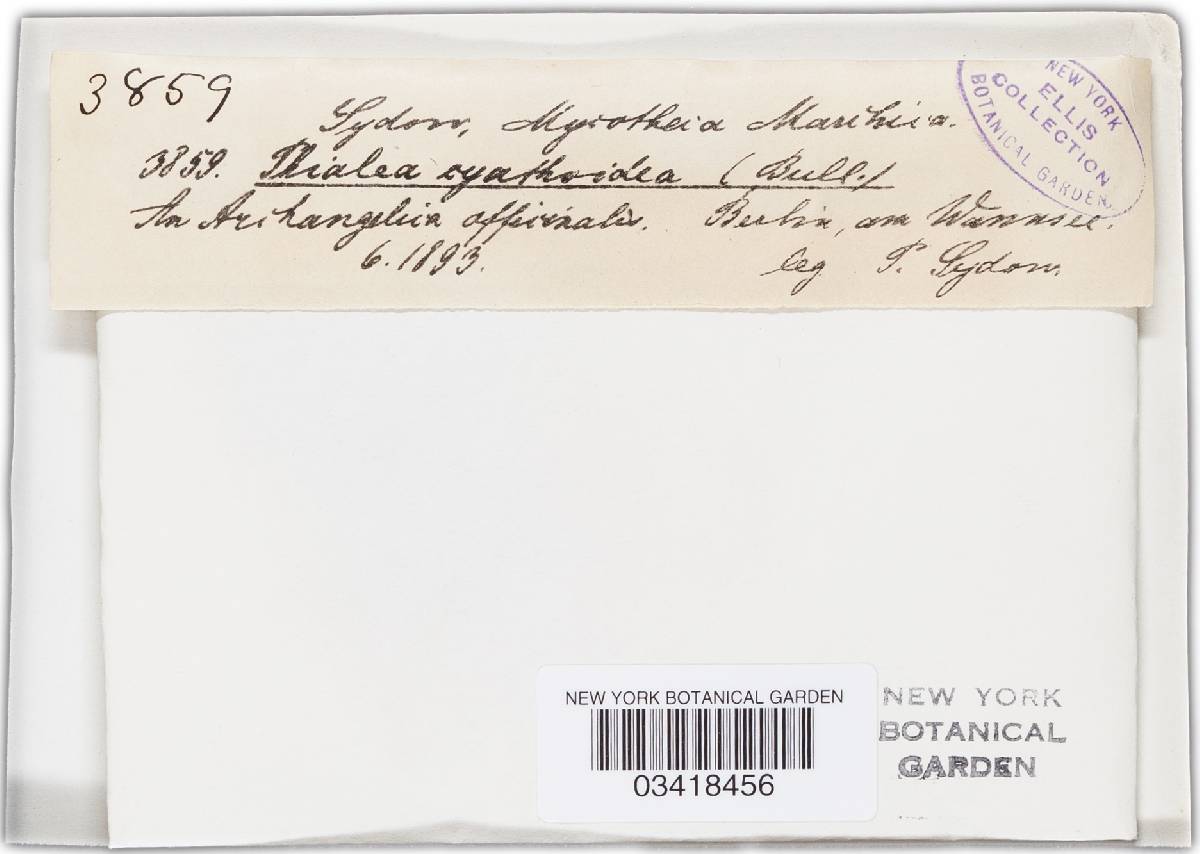 3859
Sydow, Mycotheca Marchica.
3859. Phialea cyathoidea (Bull.)
An Archangelica officinalis. Berlin, am Wannsee.
6.1893. leg P. Sydow.
NEW YORK
ELLIS
COLLECTION
BOTANICAL GARDEN
NEW YORK BOTANICAL GARDEN
03418456
NEW YORK
BOTANICAL
GARDEN